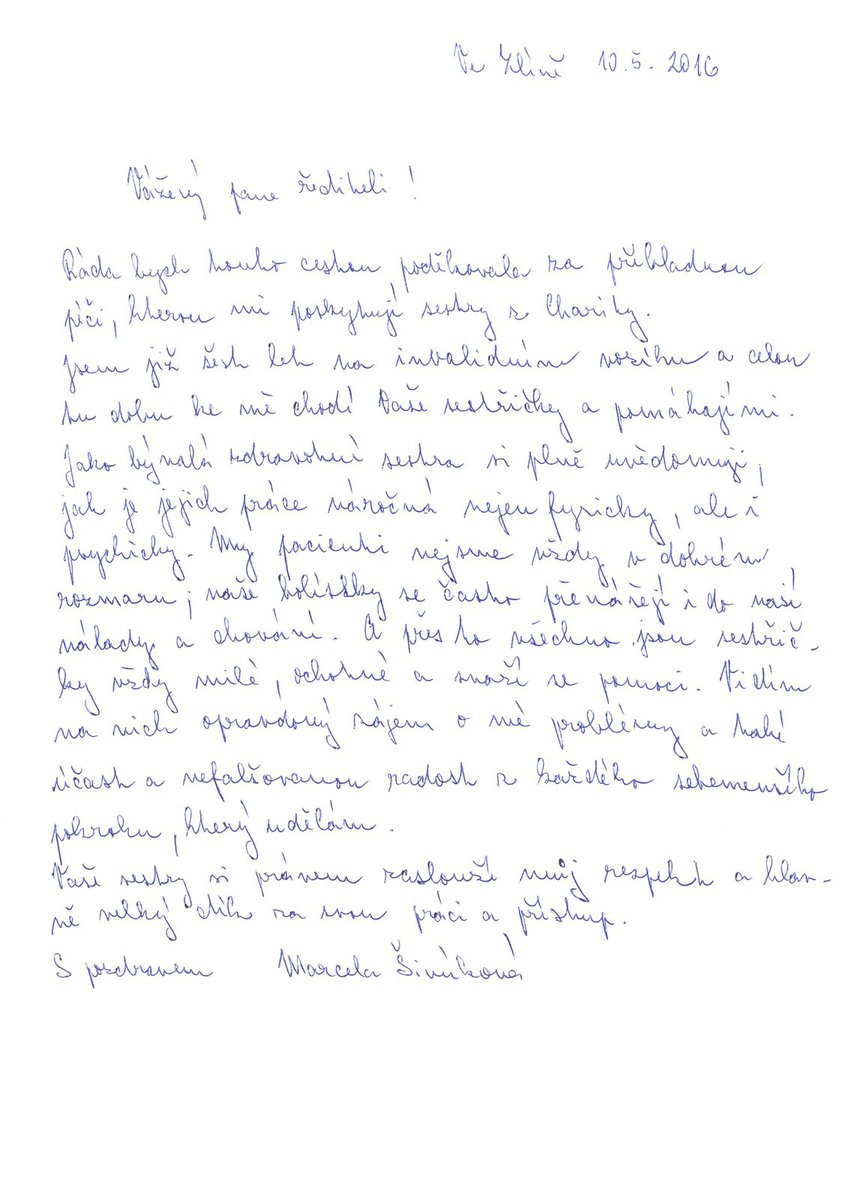 Ve Zlíně 10.5.2016
Vážený pane řediteli!
Ráda bych touto cestou poděkovala za příkladnou
péči, kterou mi poskytují sestry z Charity.
Jsem již šest let na invalidním vozíku a celou
tu dobu ke mě chodí Vaše sestřičky a pomáhají mi.
Jako bývalá zdravotní sestra si plně uvědomuji,
jak je jejich práce náročná nejen fyzicky, ale i
psychicky. My pacienti nejsme vždy v dobrém
rozmaru; naše bolístky se často přenášejí i do naší
nálady a chování. A přes to všechno jsou sestřič-
ky vždy milé, ochotné a snaží se pomoci. Vidím
na nich opravdový zájem o mé problémy a také
účast a nefalšovanou radost z každého sebemenšího
pokroku, který udělám.
Vaše sestry si právem zaslouží můj respekt a hlav-
ně velký dík za svou práci a přístup.
S pozdravem Marcela